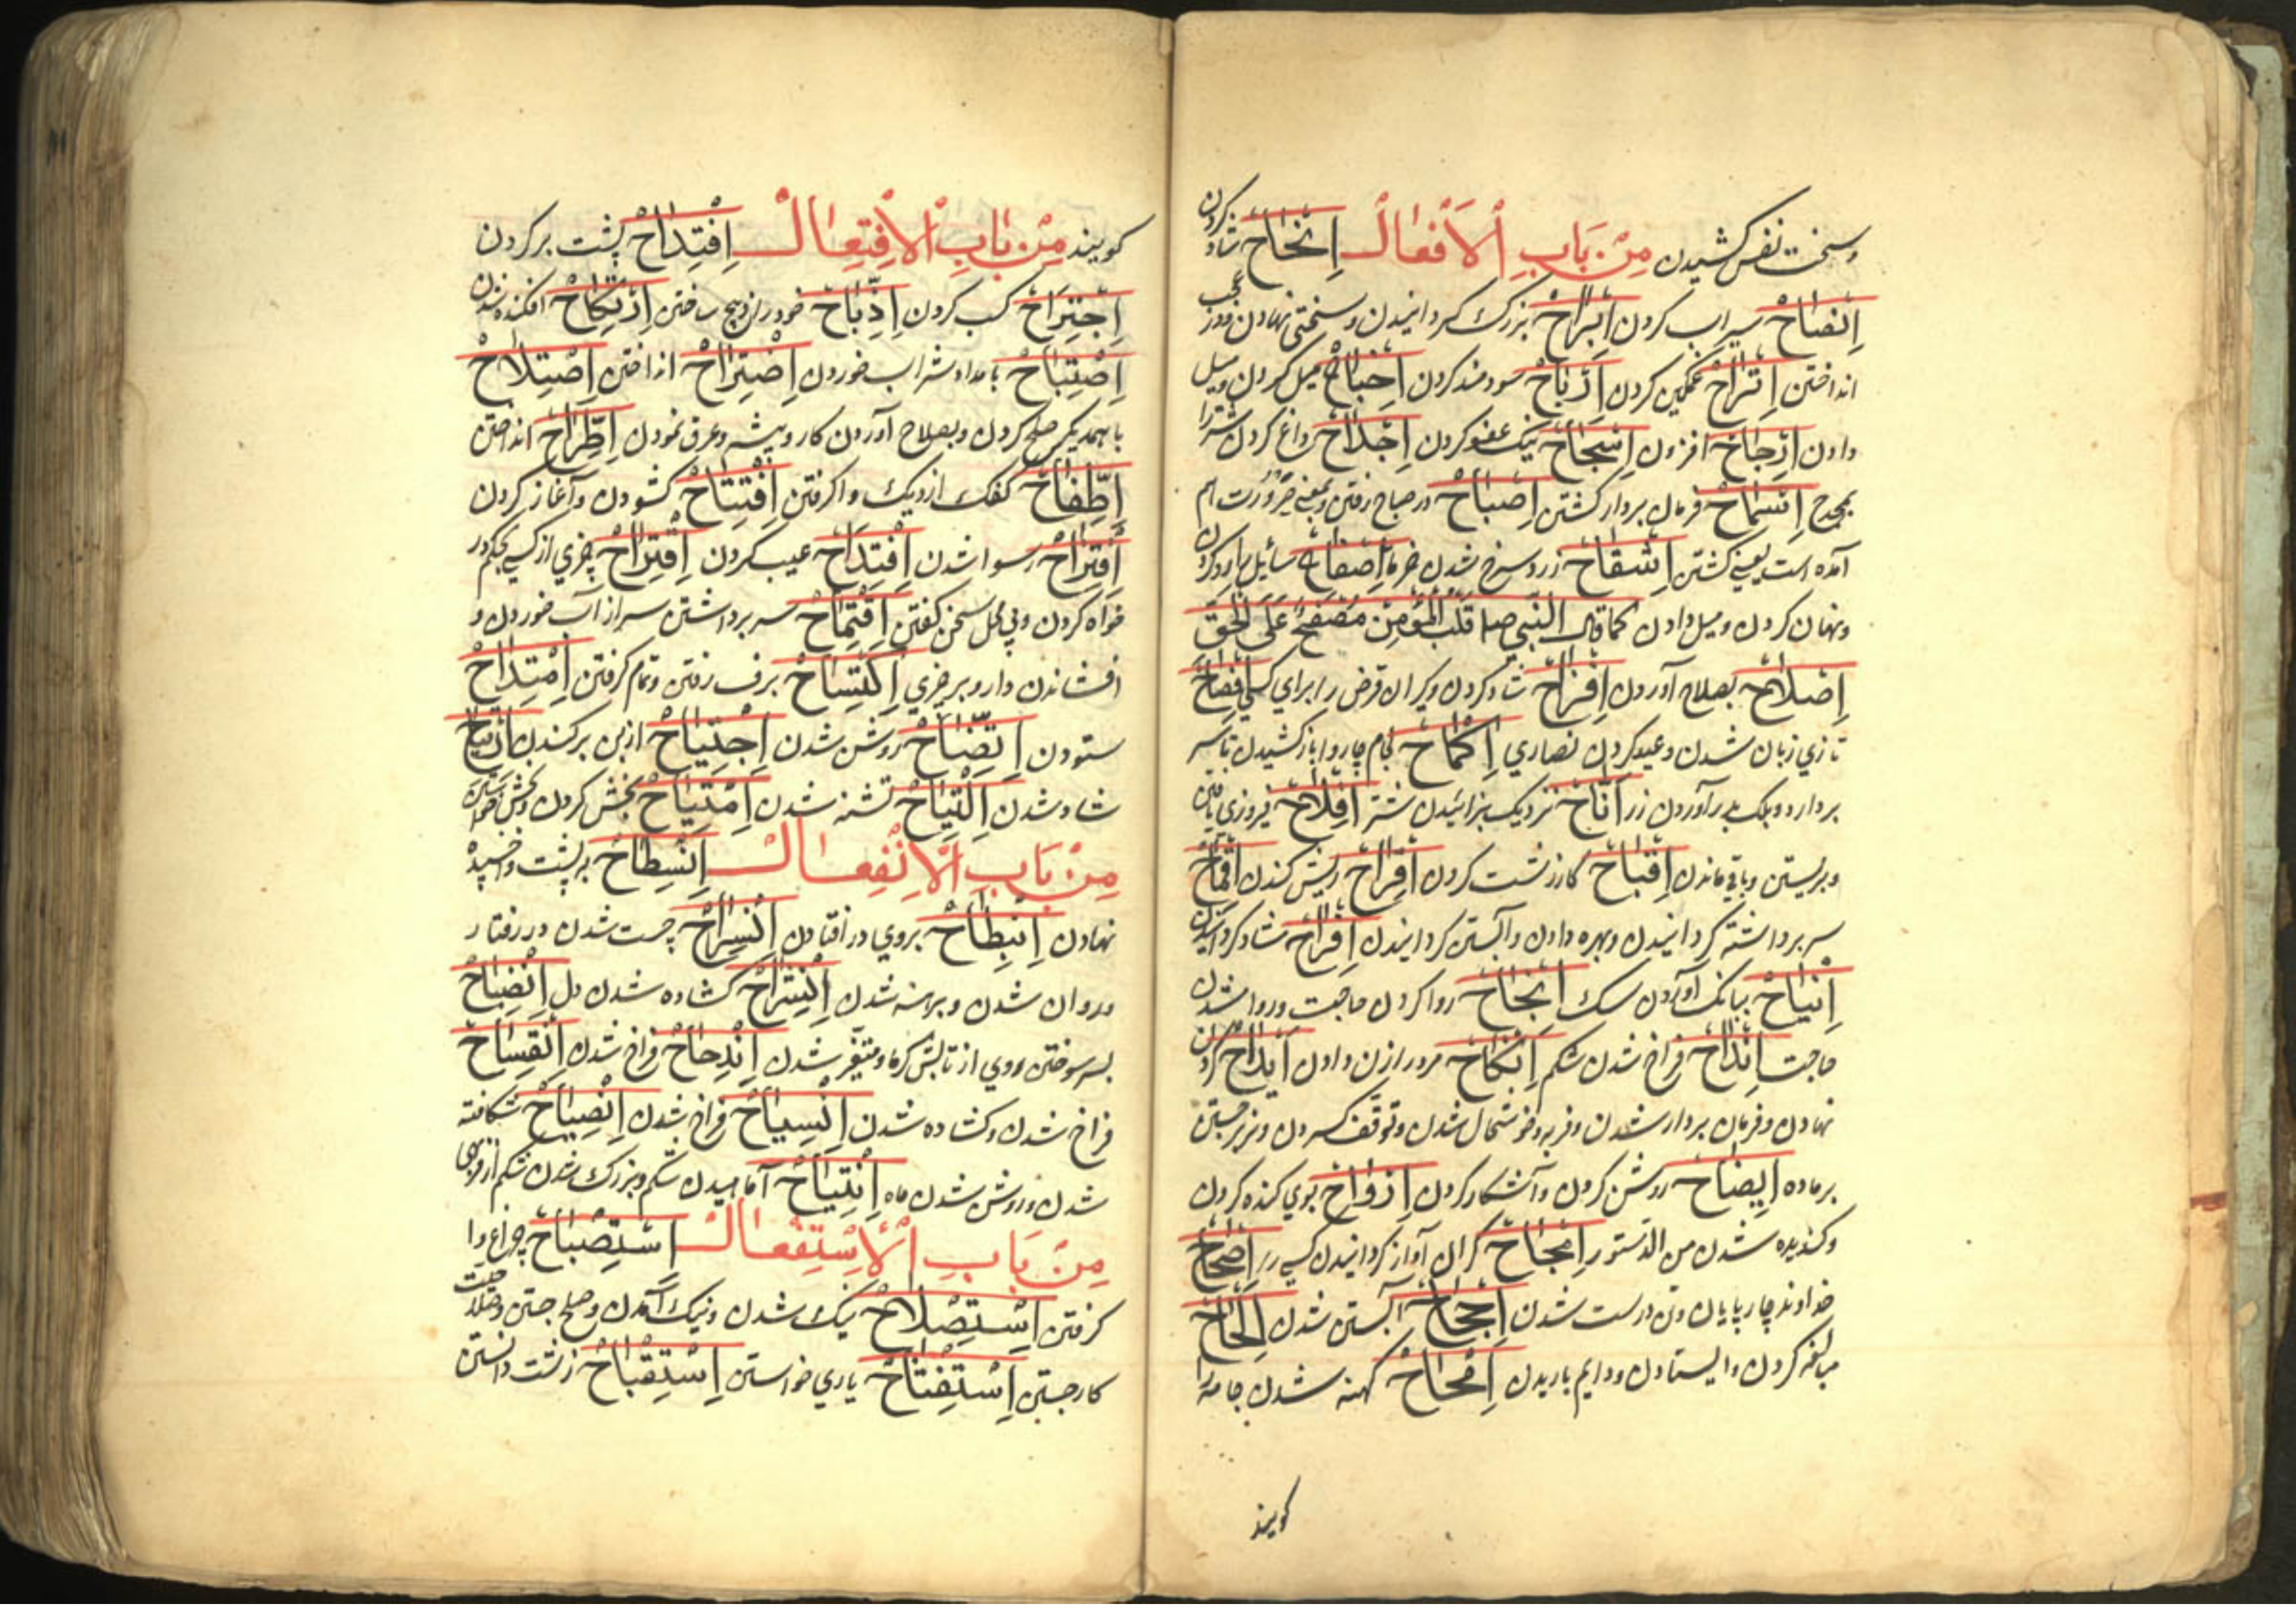 وسخت نفس کشیدن مِنْ بَابِ الْاَفْعَالْ اِنْجَاحْ شاد کردن
اِنْضَاحْ سیراب کردن اِبْرَاحْ بزرک کردانیدن وسختی نهادن
انداختن اِتْرَاحْ غمکین کردن اِرْبَاحْ سودمند کردن میل کردن ومیل
دادن اِرْجَاحْ افزون اِسْجَاحْ نیک عفو کردن داغ کردن شتر را
اِسْمَاحْ فرمان بردار کشتن اِصْبَاحْ در صباح رفتن وبمعنی صرورت هم
آمده است یعنی کشتن اِشْقَاحْ زرد وسرخ شدن خرما اِصْفَاحْ سائل را رد کردن
ونهان کردن ومیل دادن کما قال النَّبِی قَلْبُ الْمُؤْمِنْ مُصْفَحٌ عَلَی الْحَقِّ
اِصْلَاحْ بصلاح آوردن اِفْرَاحْ شاد کردن وکران قرض را برای کسی اِفْصَاحْ
تازی زبان شدن وعید کردن نصاری اِکْمَاحْ لجام چاروا باز کشیدن تا سر
بردارد نزدیک بزائیدن شتر اِفْلَاحْ فیروزی یافتن
وبزیستن وباقی ماندن اِقْبَاحْ کار زشت کردن اِقْرَاحْ ریش کندن اِقْمَاحْ
سر برداشته کردانیدن وبهره دادن وآبستن کردانیدن اِفْرَاحْ شاد کردانیدن
اِنْبَاحْ ببانک آوردن سک اِنْجَاحْ روا کردن حاجت وروا شدن
حاجت اِنْدَاحْ فراخ شدن شکم اِنْکَاحْ مرد را زن دادن
نهادن وفرمان بردار شدن وفربه وخوشحال شدن وتوقف کردن
بر ماده اِیضَاحْ روشن کردن وآشکار کردن اِرْوَاحْ بوی کنده کردن
وکندیده شدن من الدستور کران آواز کردانیدن کسی را اِصْحَاحْ
خداوند چارپایان وتن درست شدن اِجْحَاحْ آبستن شدن اِلْحَاحْ
مبالغه کردن وایستادن ودایم باریدن اِمْحَاحْ کهنه شدن جامه را
کویند
کویند مِنْ بَابِ الْاِفْتِعَالْ اِفْتِدَاحْ پشت بر کردن
اِجْتِرَاحْ کسب کردن اِذِّبَاحْ خود را ذبح ساختن اِرْتِکَاحْ افکنده شدن
اِصْطِبَاحْ بامداد شراب خوردن اِضْتِرَاحْ انداختن اِصْتِلَاحْ
با همدیکر صلح کردن وبصلاح آوردن کار وپیشه وعرق نمودن اِطِّرَاحْ انداختن
اِطِّفَاحْ کفک از دیک واکرفتن اِفْتِتَاحْ کشودن وآغاز کردن
رسوا شدن اِفْتِدَاحْ عیب کردن اِقْتِرَاحْ چیزی از کسی بحکم در
خواه کردن وبی محل سخن کفتن اِقْتِمَاحْ سر برداشتن سر از آب خوردن و
افشاندن دارو بر چیزی اِکْتِسَاحْ برف رفتن وتمام کرفتن اِمْتِدَاحْ
ستودن اِتِّضَاحْ روشن شدن اِجْتِیَاحْ از بن برکندن اِرْتِیَاحْ
شاد شدن اِلْتِیَاحْ تشنه شدن اِمْتِیَاحْ بخشش کردن وبخشش خواستن
مِنْ بَابِ الْاِنْفِعَالْ اِنْسِطَاحْ بر پشت واخسپیده
نهادن اِنْبِطَاحْ بروی در افتادن اِنْسِرَاحْ چست شدن در رفتار
وروان شدن وبرهنه شدن اِنْشِرَاحْ کشاده شدن دل اِنْضِبَاحْ
بسر سوختن وروی از تابش کرما ومتغیر شدن اِنْدِحَاحْ فراخ شدن اِنْفِسَاحْ
فراخ شدن وکشاده شدن اِنْسِیَاحْ فراخ شدن اِنْصِیَاحْ شکافته
شدن وروشن شدن ماه اِنْتِیَاحْ آماهیدن شکم وبزرک شدن شکم از فربهی
مِنْ بَابِ الْاِسْتِفْعَالْ اِسْتِصْبَاحْ چراغ وا
کرفتن اِسْتِصْلَاحْ نیک شدن ونیک آمدن وصلح جستن
کار جستن اِسْتِفْتَاحْ یاری خواستن اِسْتِقْبَاحْ زشت دانستن